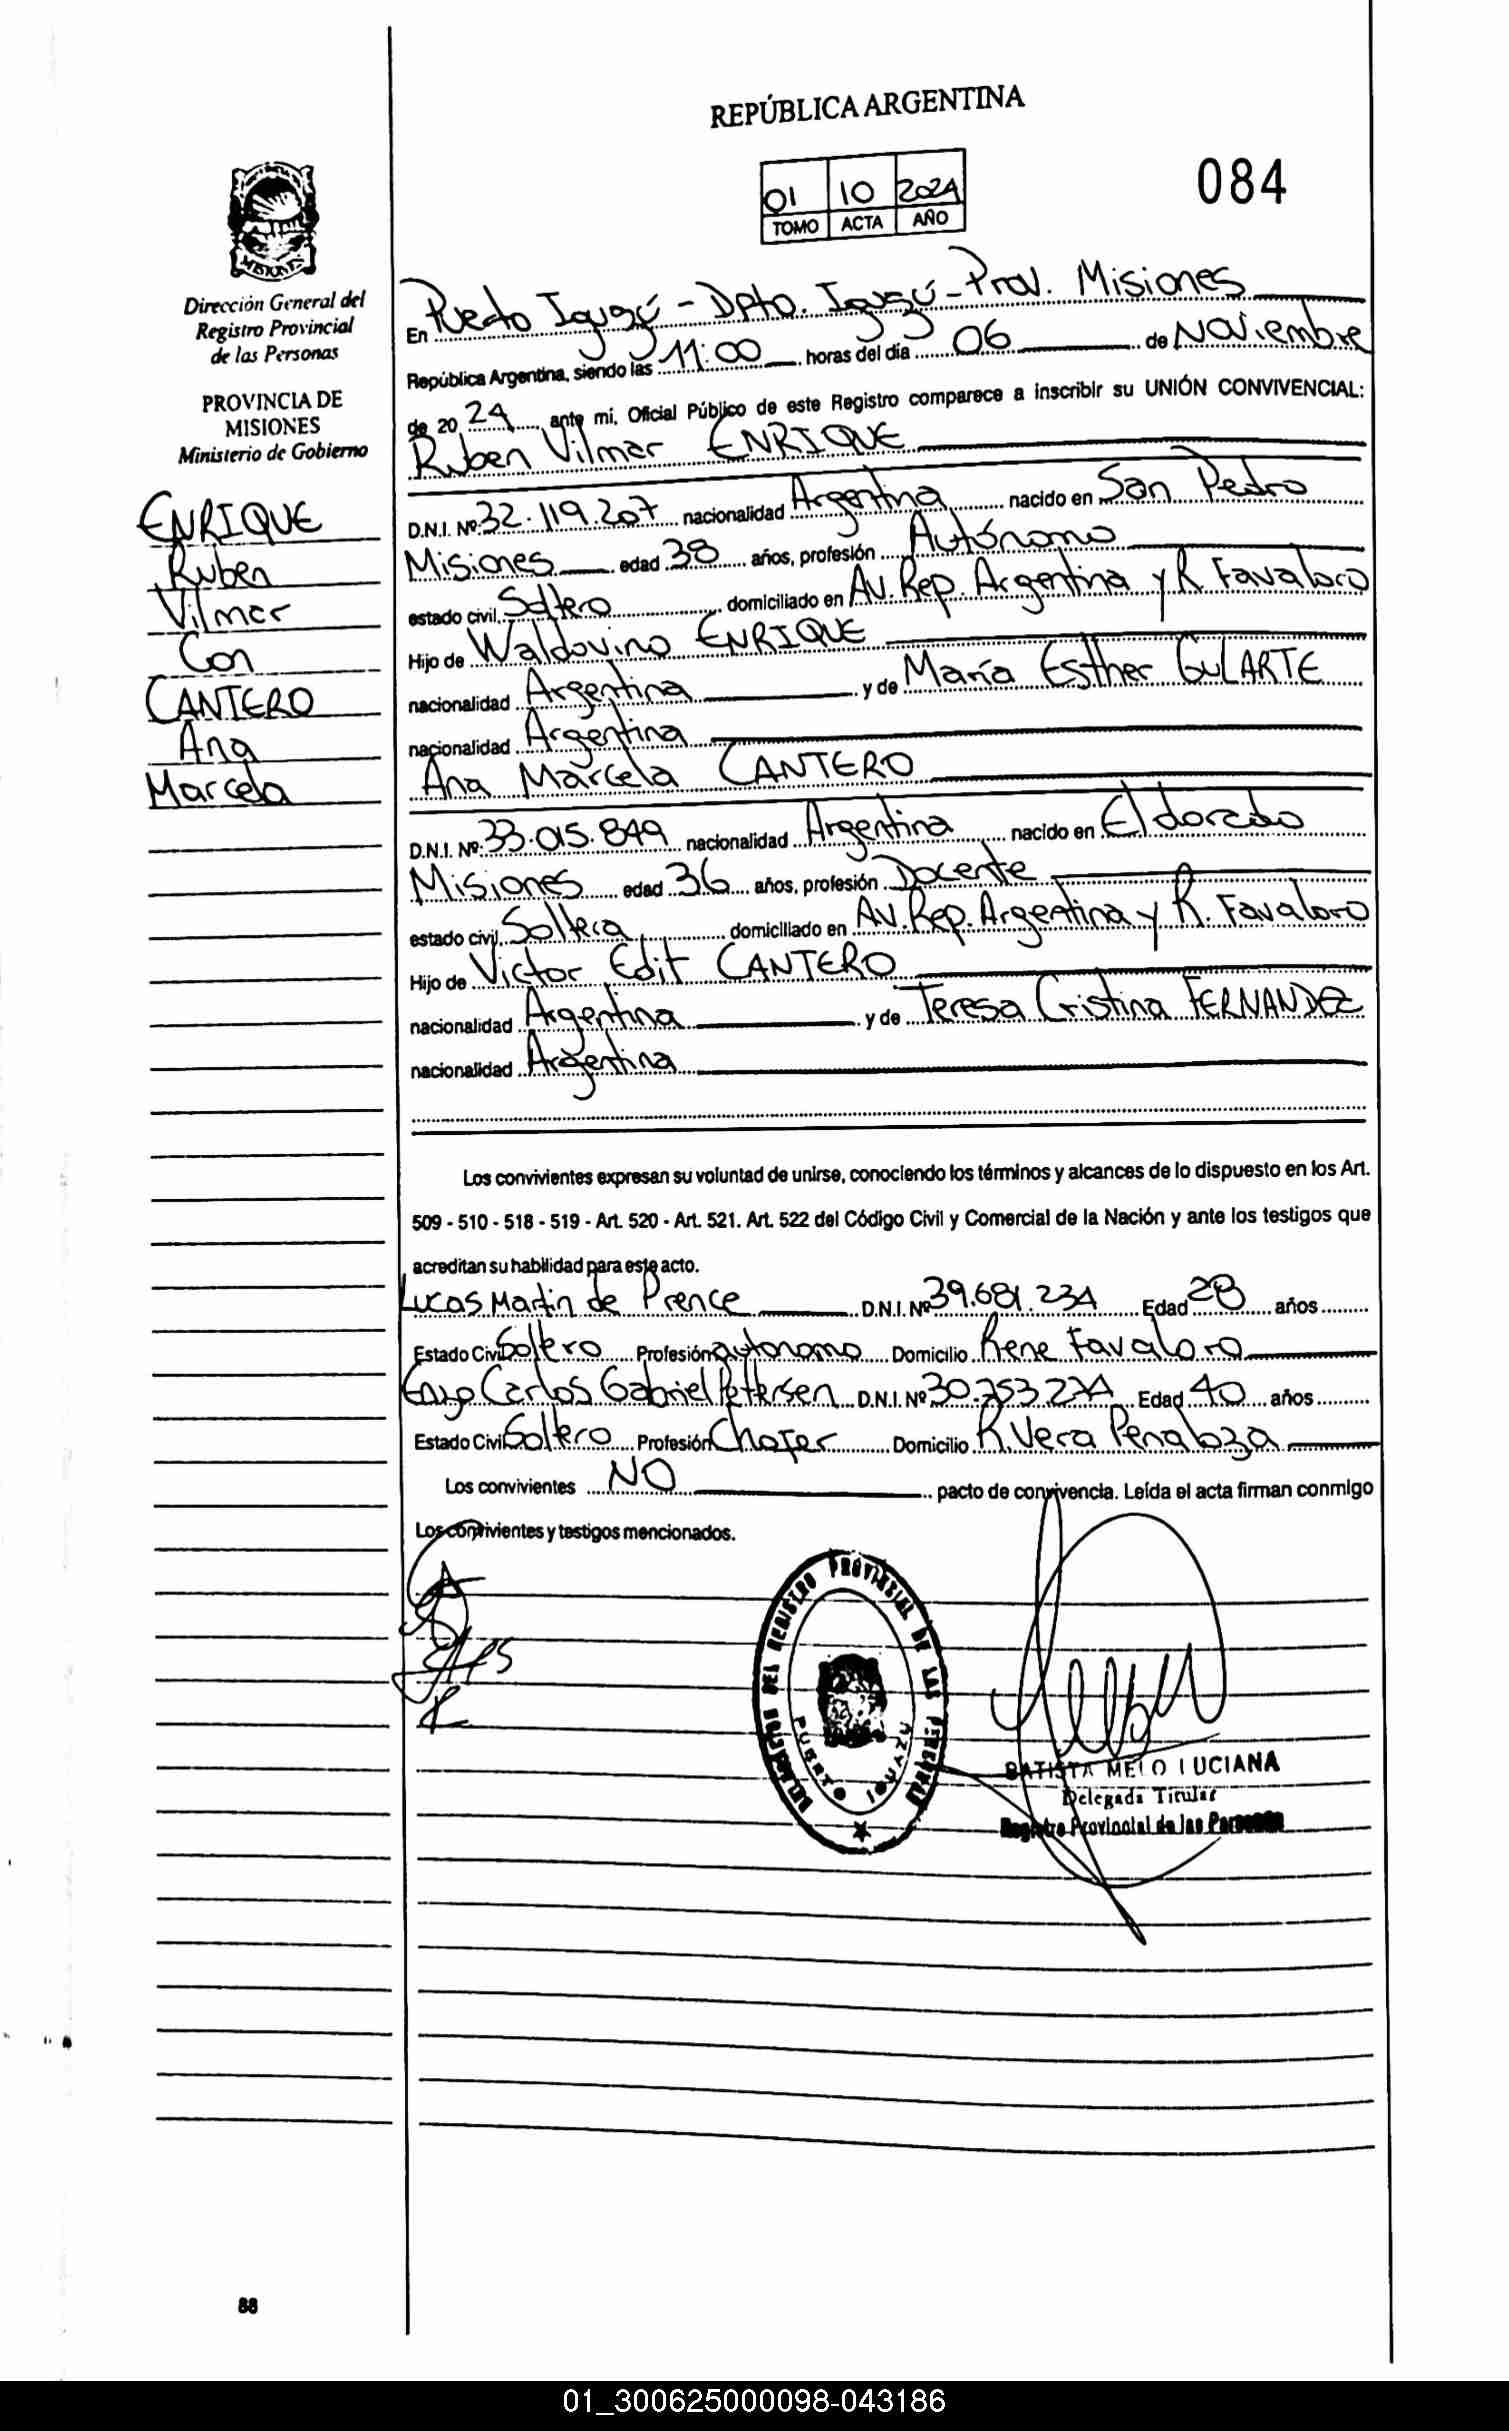 REPÚBLICA ARGENTINA
084
01 10 2024
TOMO ACTA AÑO
MISIONES
Dirección General del
Registro Provincial
de las Personas
PROVINCIA DE
MISIONES
Ministerio de Gobierno
ENRIQUE
Ruben
Vilmar
Con
CANTERO
Ana
Marcela
En Puerto Iguazú - Dpto. Iguazú - Prov. Misiones
República Argentina, siendo las 11:00 horas del día 06 de Noviembre
de 20 24 ante mi, Oficial Público de este Registro comparece a inscribir su UNIÓN CONVIVENCIAL:
Ruben Vilmar ENRIQUE
D.N.I. Nº: 32.119.207 nacionalidad Argentina nacido en San Pedro
Misiones edad 38 años, profesión Autónomo
estado civil, Soltero domiciliado en Av. Rep. Argentina y R. Favaloro
Hijo de Waldovino ENRIQUE
nacionalidad Argentina y de María Esther GULARTE
nacionalidad Argentina
Ana Marcela CANTERO
D.N.I. Nº: 33.015.849 nacionalidad Argentina nacido en Eldorado
Misiones edad 36 años, profesión Docente
estado civil, Soltera domiciliado en Av. Rep. Argentina y R. Favaloro
Hijo de Victor Edit CANTERO
nacionalidad Argentina y de Teresa Cristina FERNANDEZ
nacionalidad Argentina
Los convivientes expresan su voluntad de unirse, conociendo los términos y alcances de lo dispuesto en los Art.
509 - 510 - 518 - 519 - Art. 520 - Art. 521. Art. 522 del Código Civil y Comercial de la Nación y ante los testigos que
acreditan su habilidad para este acto.
Lucas Martin de Prence D.N.I. Nº 39.681.234 Edad 28 años
Estado Civil Soltero Profesión autonomo Domicilio Rene Favaloro
Carlos Gabriel Petersen D.N.I. Nº 30.753.274 Edad 40 años
Estado Civil Soltero Profesión Chofer Domicilio R Vera Penaloza
Los convivientes NO pacto de convivencia. Leída el acta firman conmigo
Los convivientes y testigos mencionados.
DEL REGISTRO PROVINCIAL DE LAS PERSONAS
PUERTO IGUAZU
BATISTA MELO LUCIANA
Delegada Titular
Registro Provincial de las Personas
88
01_300625000098-043186